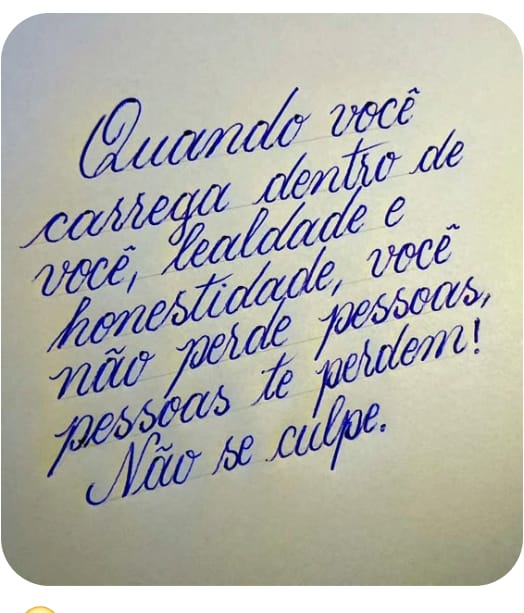 Quando você
carrega dentro de
você, lealdade e
honestidade, você
não perde pessoas,
pessoas te perdem!
Não se culpe.